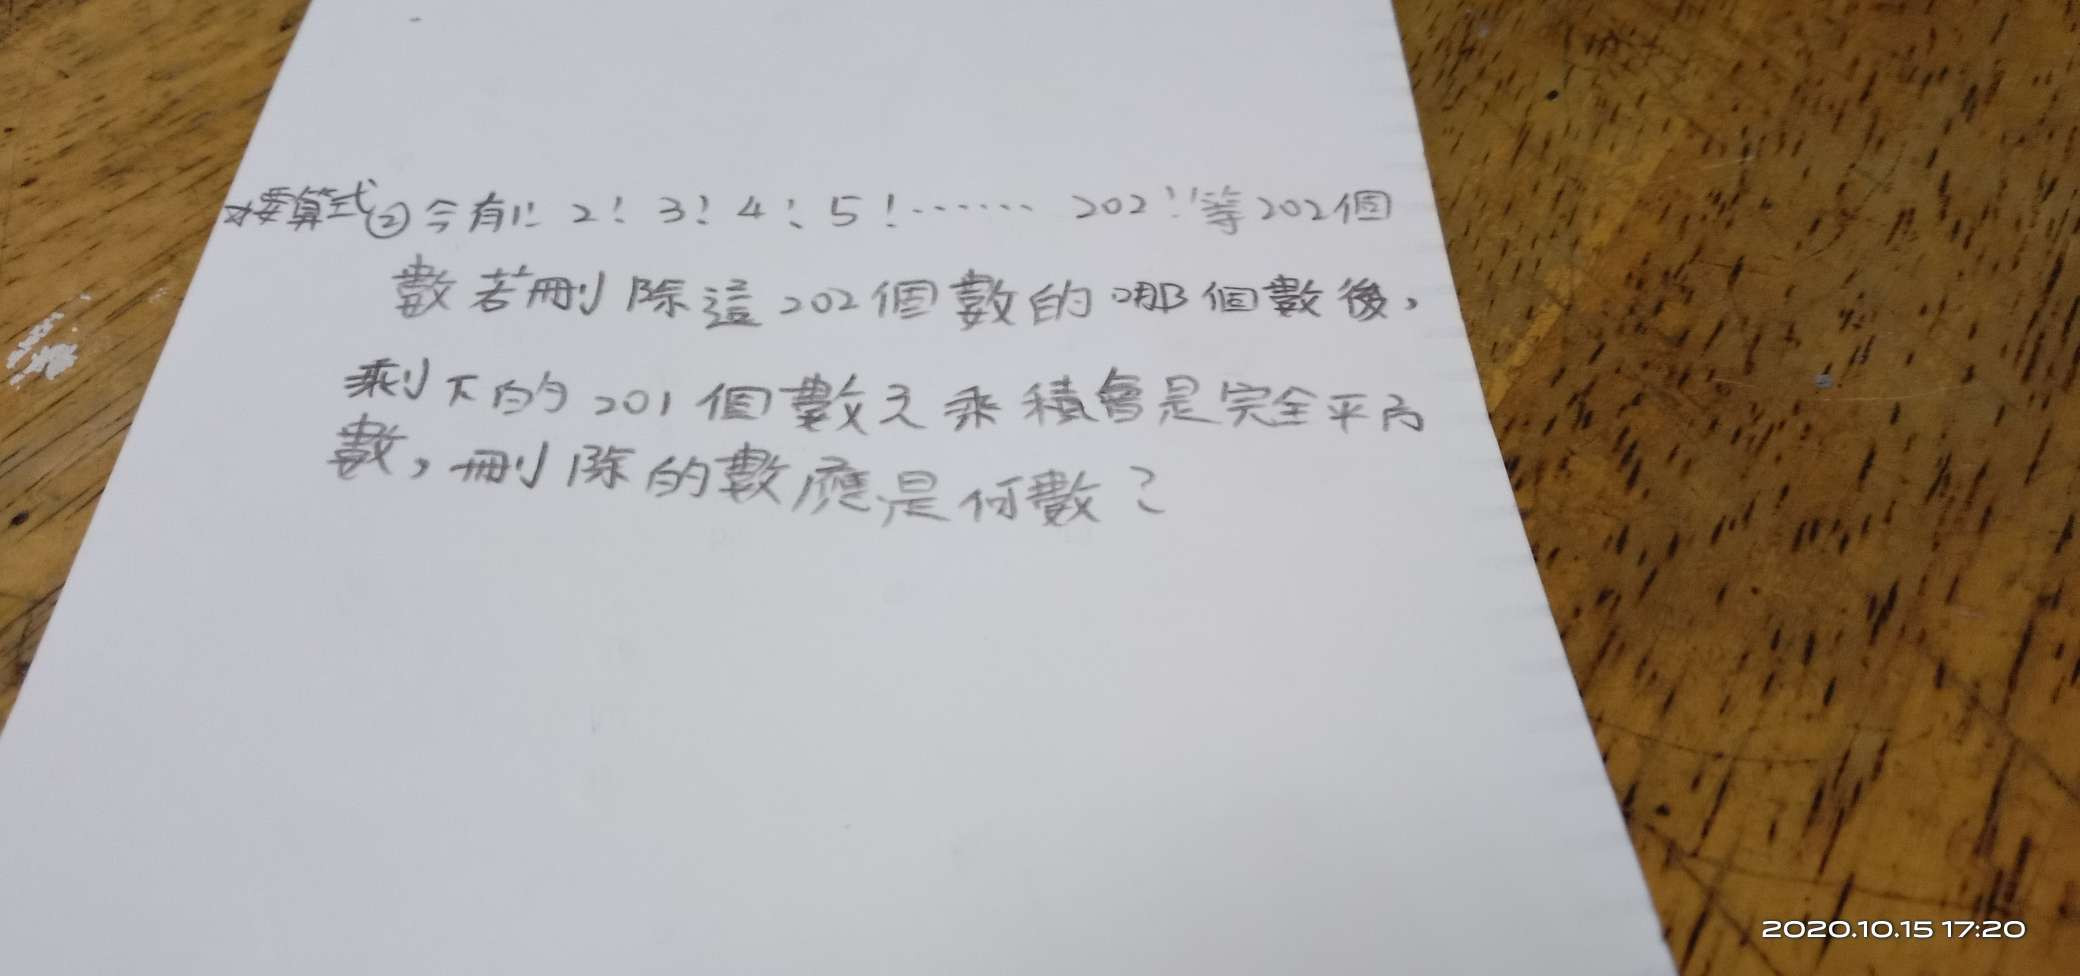 要算式② 今有1! 2! 3! 4! 5!…… 202!等202個
數若刪除這202個數的哪個數後,
剩下的201個數之乘積會是完全平方
數,刪除的數應是何數?
2020.10.15 17:20